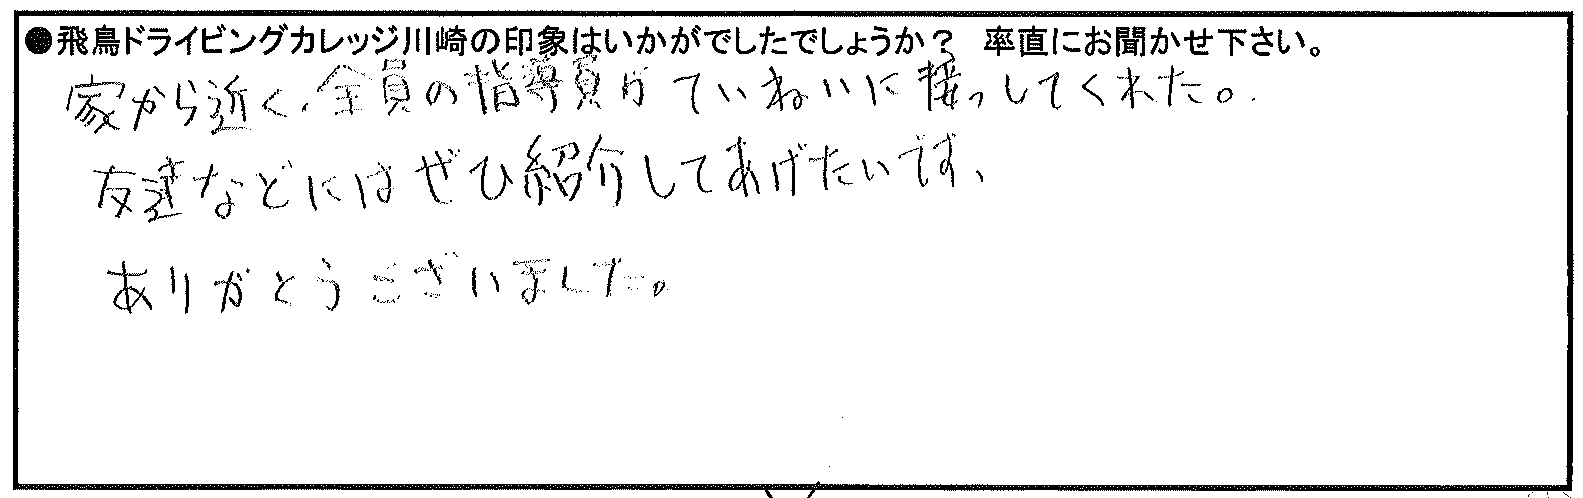 ●飛鳥ドライビングカレッジ川崎の印象はいかがでしたでしょうか？　率直にお聞かせ下さい。
家から近く、全員の指導員がていねいに接っしてくれた。
友達などにはぜひ紹介してあげたいです、
ありがとうございました。